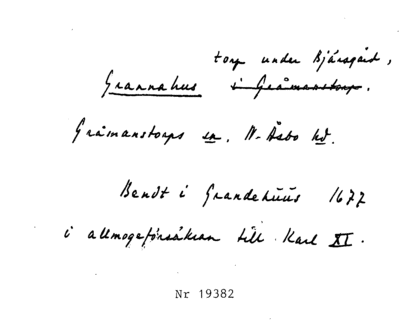 torp under Bjärsgård,
Grannahus i Gråmanstorp.
Gråmanstorps sn. N. Åsbo hd.
Bendt i Grandehuus 1677
i allmogeförsäkran till Karl XI.
Nr 19382